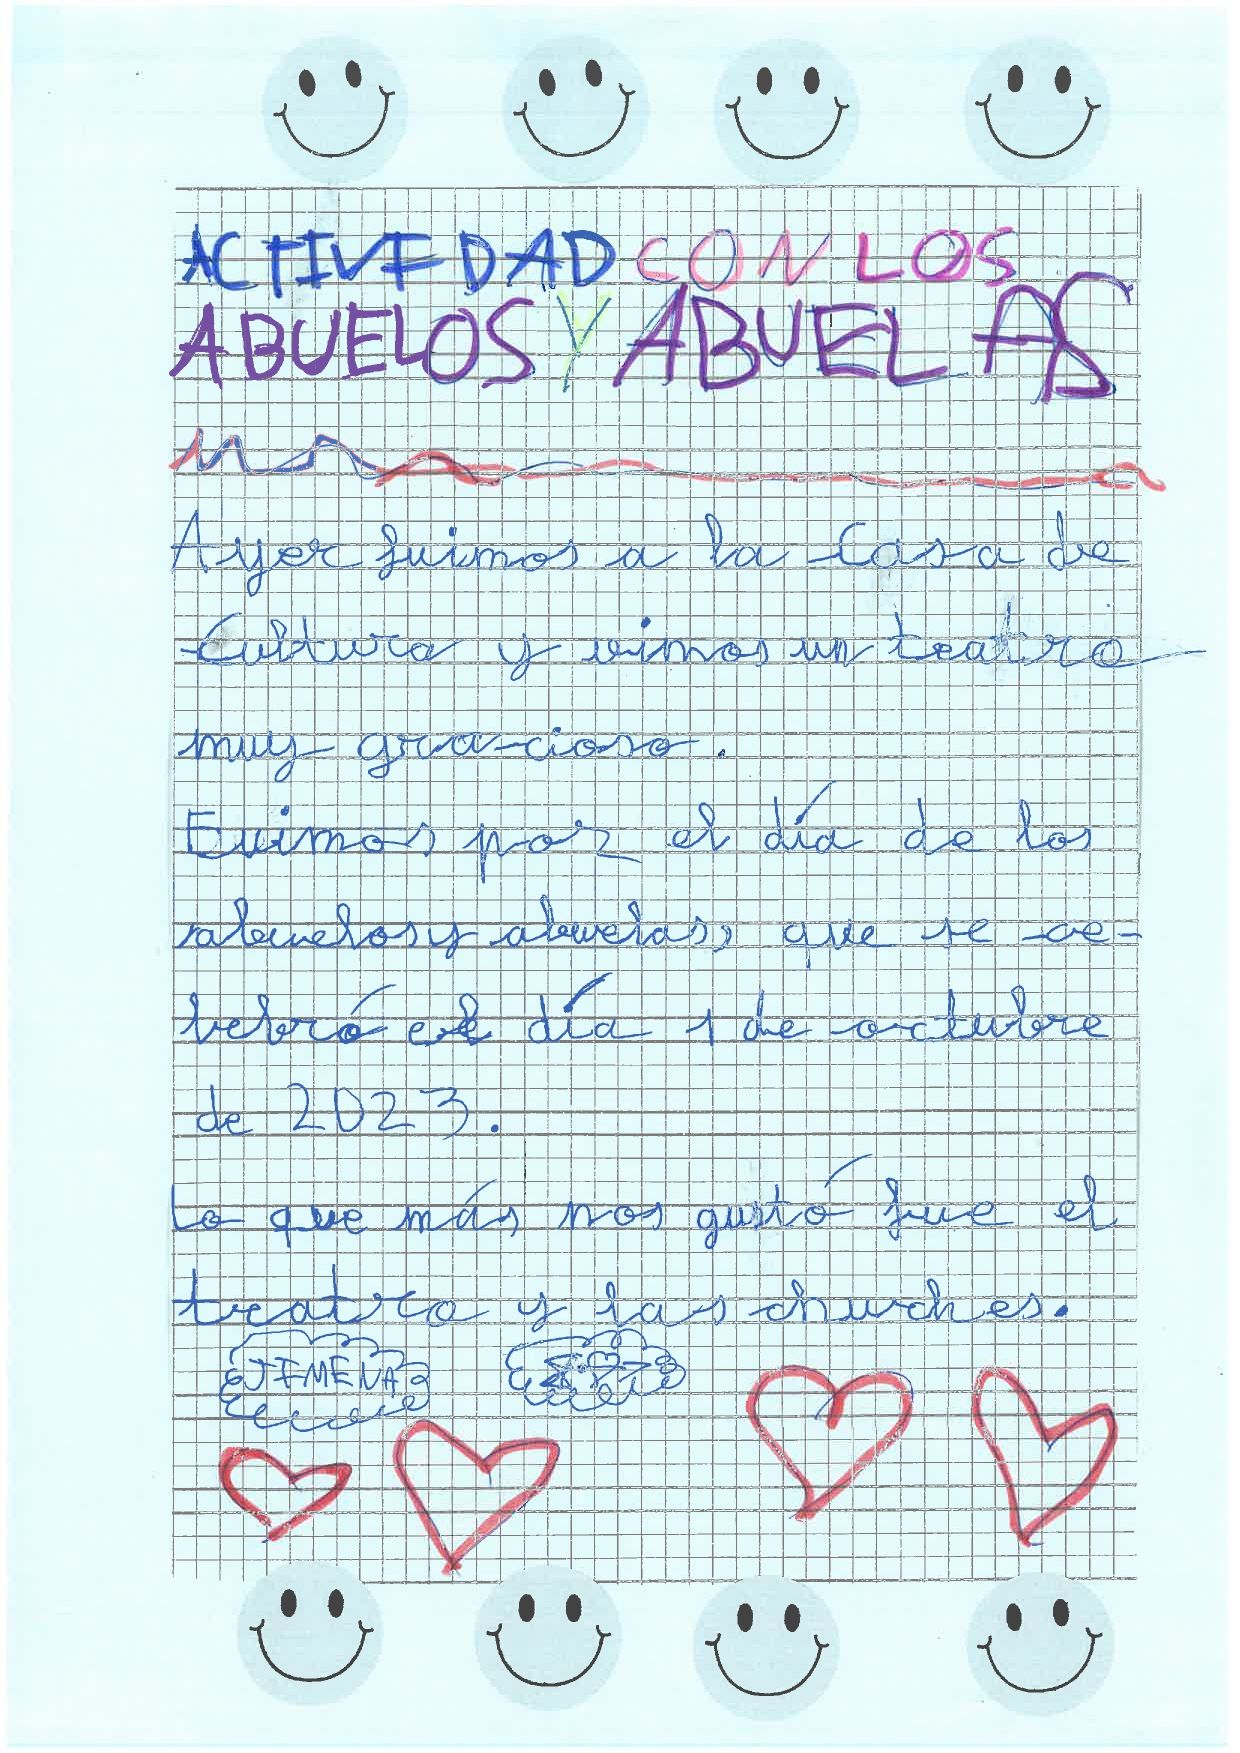 ACTIVIDAD CON LOS
ABUELOS Y ABUELAS
Ayer fuimos a la Casa de
Cultura y vimos un teatro
muy gracioso.
Fuimos por el día de los
abuelos y abuelas, que se ce-
lebró el día 1 de octubre
de 2023.
Lo que más nos gustó fue el
teatro y las chuches.
JIMENA